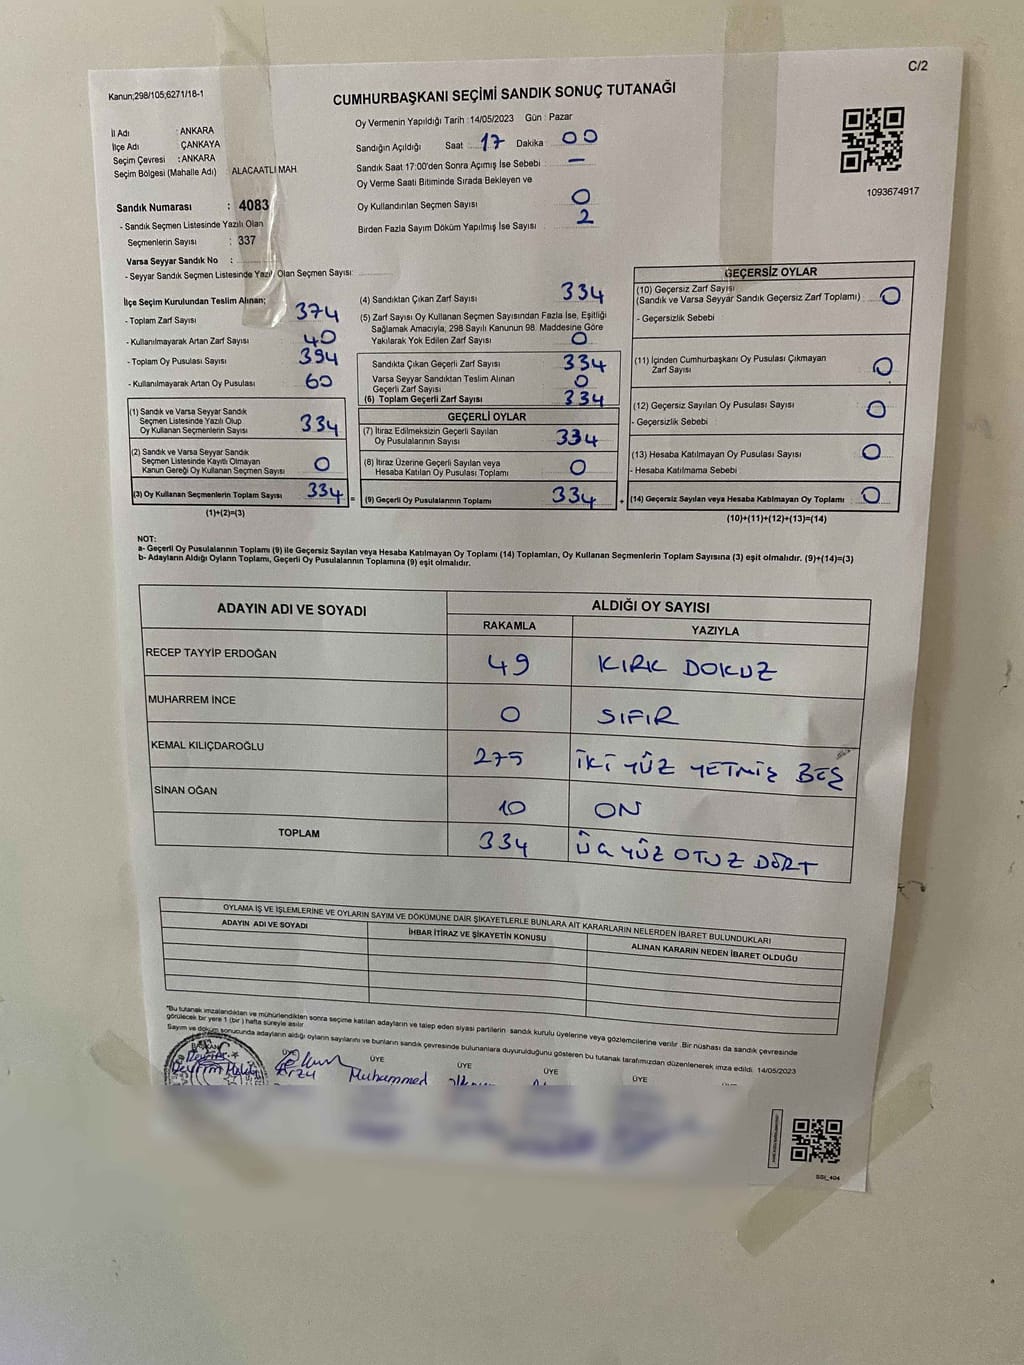 C/2
Kanun;298/105;6271/18-1
CUMHURBAŞKANI SEÇİMİ SANDIK SONUÇ TUTANAĞI
İl Adı : ANKARA
İlçe Adı ÇANKAYA
Seçim Çevresi : ANKARA
Seçim Bölgesi (Mahalle Adı) : ALACAATLI MAH
Sandık Numarası : 4083
- Sandık Seçmen Listesinde Yazılı Olan
Seçmenlerin Sayısı : 337
Varsa Seyyar Sandık No :
- Seyyar Sandık Seçmen Listesinde Yazılı Olan Seçmen Sayısı:
Oy Vermenin Yapıldığı Tarih :14/05/2023 Gün : Pazar
Sandığın Açıldığı Saat 17 Dakika 00
Sandık Saat 17:00'den Sonra Açımış İse Sebebi : —
Oy Verme Saati Bitiminde Sırada Bekleyen ve
Oy Kullandırılan Seçmen Sayısı 0
Birden Fazla Sayım Döküm Yapılmış İse Sayısı : 2
1093674917
İlçe Seçim Kurulundan Teslim Alınan;
- Toplam Zarf Sayısı 374
- Kullanılmayarak Artan Zarf Sayısı 40
- Toplam Oy Pusulası Sayısı 394
- Kullanılmayarak Artan Oy Pusulası 60
(1) Sandık ve Varsa Seyyar Sandık
Seçmen Listesinde Yazılı Olup
Oy Kullanan Seçmenlerin Sayısı 334
(2) Sandık ve Varsa Seyyar Sandık
Seçmen Listesinde Kayıtlı Olmayan
Kanun Gereği Oy Kullanan Seçmen Sayısı 0
(3) Oy Kullanan Seçmenlerin Toplam Sayısı 334 =
(1)+(2)=(3)
(4) Sandıktan Çıkan Zarf Sayısı 334
(5) Zarf Sayısı Oy Kullanan Seçmen Sayısından Fazla İse, Eşitliği
Sağlamak Amacıyla, 298 Sayılı Kanunun 98. Maddesine Göre
Yakılarak Yok Edilen Zarf Sayısı 0
Sandıkta Çıkan Geçerli Zarf Sayısı 334
Varsa Seyyar Sandıktan Teslim Alınan
Geçerli Zarf Sayısı 0
(6) Toplam Geçerli Zarf Sayısı 334
GEÇERLİ OYLAR
(7) İtiraz Edilmeksizin Geçerli Sayılan
Oy Pusulalarının Sayısı 334
(8) İtiraz Üzerine Geçerli Sayılan veya
Hesaba Katılan Oy Pusulası Toplamı 0
(9) Geçerli Oy Pusulalarının Toplamı 334 +
GEÇERSİZ OYLAR
(10) Geçersiz Zarf Sayısı
(Sandık ve Varsa Seyyar Sandık Geçersiz Zarf Toplamı) 0
- Geçersizlik Sebebi :
(11) İçinden Cumhurbaşkanı Oy Pusulası Çıkmayan
Zarf Sayısı 0
(12) Geçersiz Sayılan Oy Pusulası Sayısı 0
- Geçersizlik Sebebi :
(13) Hesaba Katılmayan Oy Pusulası Sayısı 0
- Hesaba Katılmama Sebebi :
(14) Geçersiz Sayılan veya Hesaba Katılmayan Oy Toplamı 0
(10)+(11)+(12)+(13)=(14)
NOT:
a- Geçerli Oy Pusulalarının Toplamı (9) ile Geçersiz Sayılan veya Hesaba Katılmayan Oy Toplamı (14) Toplamları, Oy Kullanan Seçmenlerin Toplam Sayısına (3) eşit olmalıdır. (9)+(14)=(3)
b- Adayların Aldığı Oyların Toplamı, Geçerli Oy Pusulalarının Toplamına (9) eşit olmalıdır.
ADAYIN ADI VE SOYADI
ALDIĞI OY SAYISI
RAKAMLA YAZIYLA
RECEP TAYYİP ERDOĞAN 49 KIRK DOKUZ
MUHARREM İNCE 0 SIFIR
KEMAL KILIÇDAROĞLU 275 İKİ YÜZ YETMİŞ BEŞ
SİNAN OĞAN 10 ON
TOPLAM 334 ÜÇ YÜZ OTUZ DÖRT
OYLAMA İŞ VE İŞLEMLERİNE VE OYLARIN SAYIM VE DÖKÜMÜNE DAİR ŞİKAYETLERLE BUNLARA AİT KARARLARIN NELERDEN İBARET BULUNDUKLARI
ADAYIN ADI VE SOYADI
İHBAR İTİRAZ VE ŞİKAYETİN KONUSU
ALINAN KARARIN NEDEN İBARET OLDUĞU
"Bu tutanak imzalandıktan ve mühürlendikten sonra seçime katılan adayların ve talep eden siyasi partilerin sandık kurulu üyelerine veya gözlemcilerine verilir. Bir nüshası da sandık çevresinde
görülecek bir yere 1 (bir ) hafta süreyle asılır.
Sayım ve döküm sonucunda adayların aldığı oyların sayılarını ve bunların sandık çevresinde bulunanlara duyurulduğunu gösteren bu tutanak tarafımızdan düzenlenerek imza edildi. 14/05/2023
BAŞKAN ÜYE ÜYE ÜYE ÜYE ÜYE ÜYE
Arzu Muhammed
SSI_404